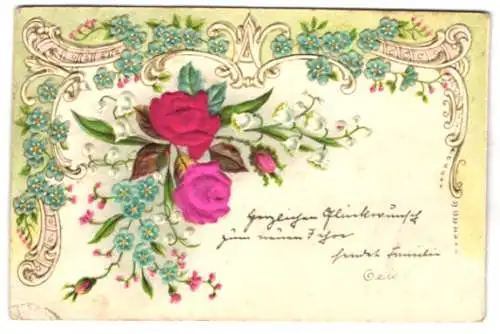 Herzlichen Glückwunsch
zum neuen Jahre
sendet Familie